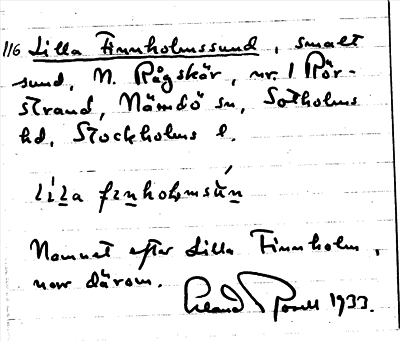 116 Lilla Finnholmssund, smalt
sund, N. Rågskär, nr. 1 Rör-
strand, Nämdö sn, Sotholms
hd, Stockholms l.
lı̆lla fınhoḷmsún
Namnet efter Lilla Finnholm,
norr därom.
Erland Rosell 1933.